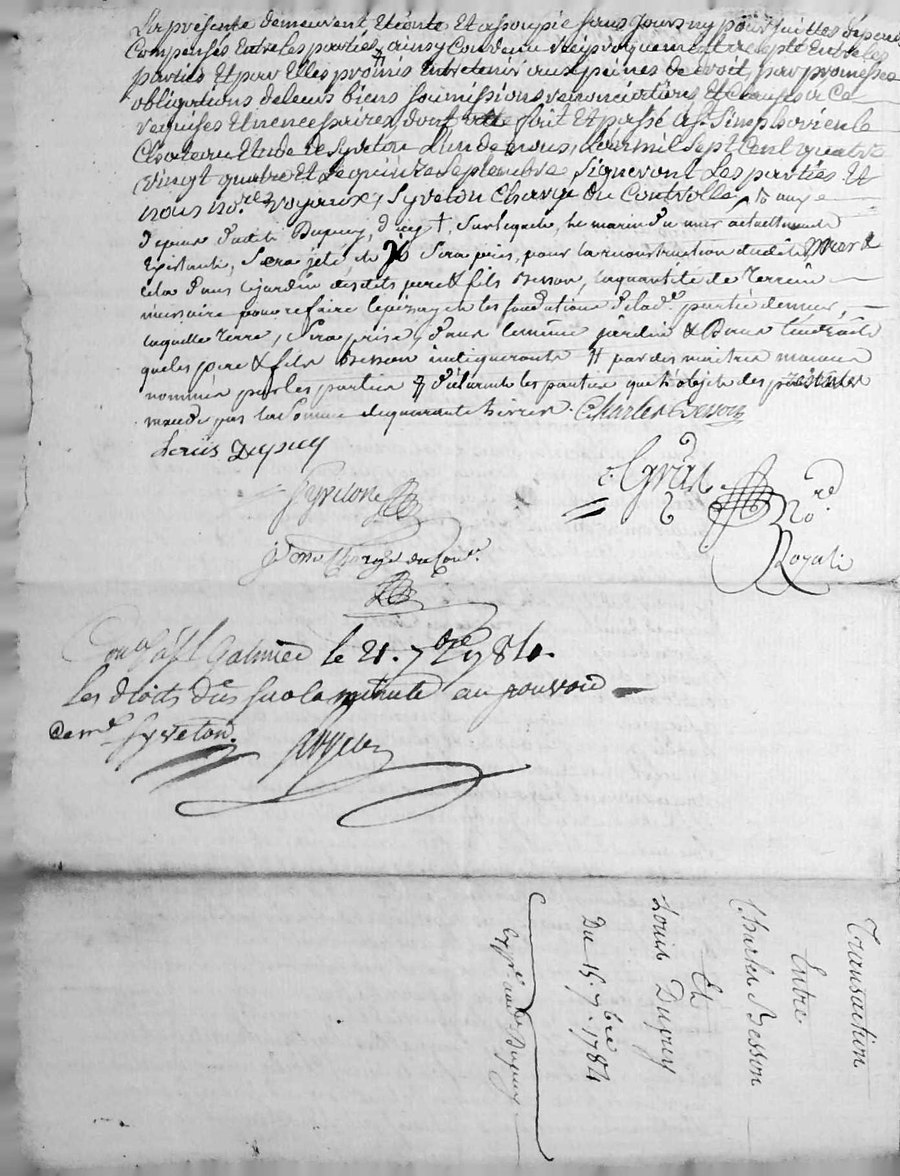 La présente demeurent Eteinte Et assoupie sans Jours ny poursuittes dépens
Compensés Entre les parties, ainsy Convenu réciproquement accepté Entre les
parties Et par Elles promis Entretenir aux peines de droit, par promesses
obligations de leurs biens soumissions renonciations Et Clauses a Ce
requises Et necessaires, dont acte fait Et passé a St. Simphorien le
Chateau Etude de Syveton L'un de nous, L'an mil Sept Cent quatre
vingt quatre Et Le quinze Septembre, Signeront Les parties Et
nous no.res Royaux, Syveton Chargé Du Controlle,
dudit Dupuy, d'icy †, Surlequel, le marin du mur actuellement
Existant, Sera jeté, et Sera pris, pour la reconstruction dudit mur &
cela dans le jardin desdits pere & fils Besson, la quantité de Terrein
necessaire pour refaire les fondations de lad.e partie de mur,
laquelle Terre, Sera prise, dans le même jardin & Dans l'endroit
que les pere & fils Besson indiqueront # par des maitres macons
nommés par les parties # déclarent les parties que l'objet des présentes
n'excede pas la Somme de quarante livres. Charles Besson
Louis Dupuy
Syveton
Gras
No.re
Royal
Chargé du Cont.le
Con.lé à St Galmier le 21. 7bre 1784.
Les droits dûs sur la minute au pouvoir
de m.e Syveton.
Transaction
Entre
Charles Besson
Et
Louis Dupuy
Du 15. 7.bre 1784
Exp.é aud. Dupuy